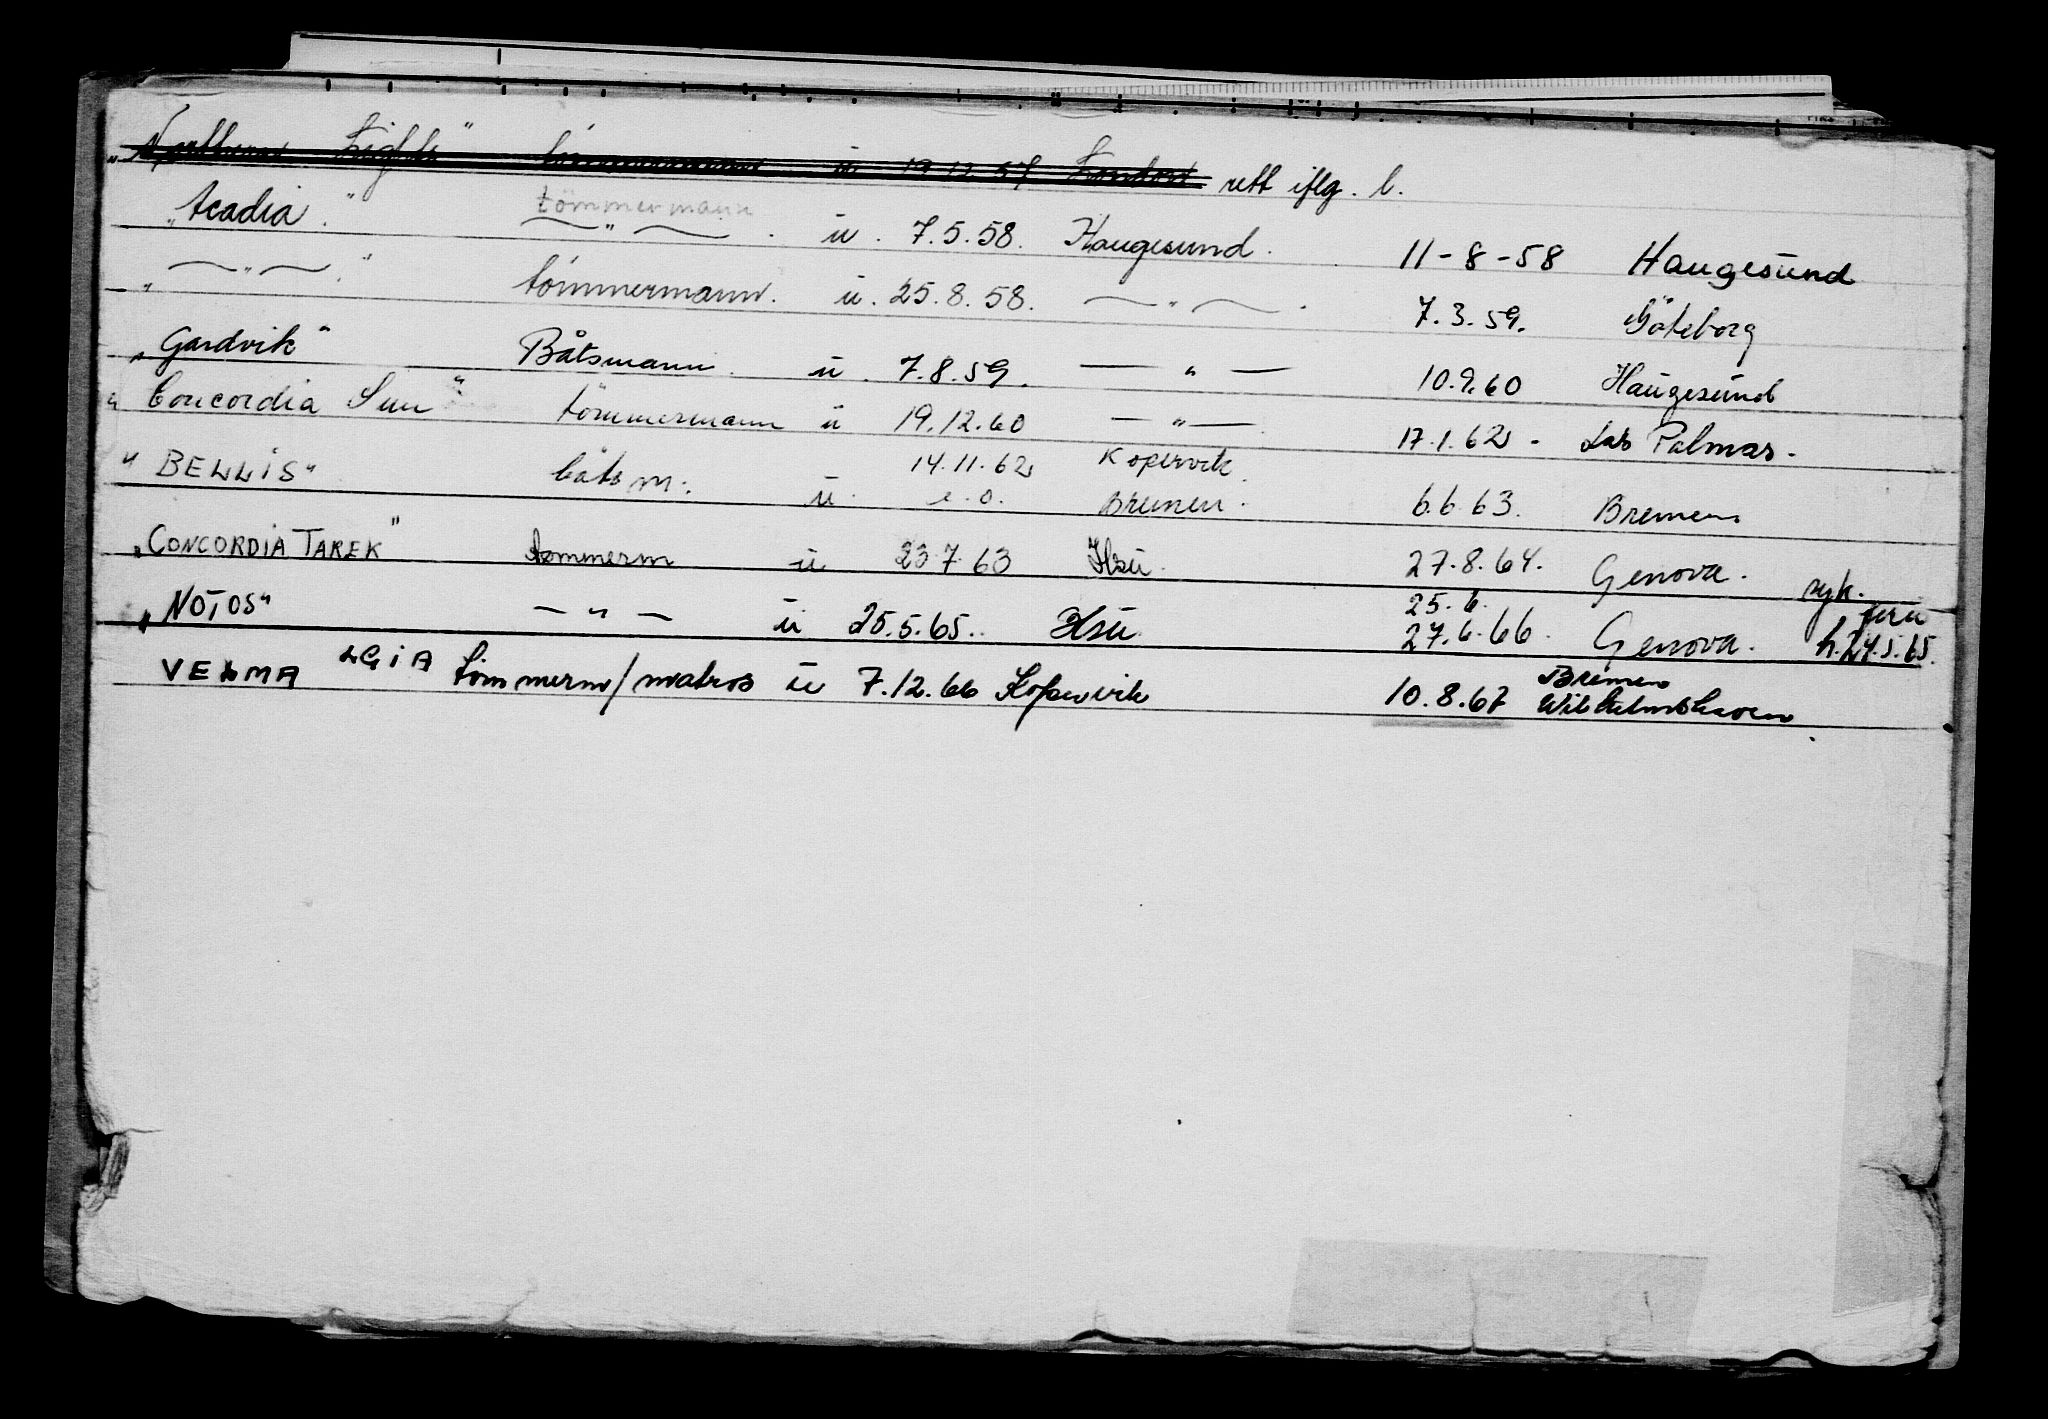 "Northern Lights" tömmermann u 19.12.57 London rett iflg. l.
"Acadia" tömmermann — " — u. 7.5.58. Haugesund. 11-8-58 Haugesund
" — " — " tömmermann. u. 25.8.58. — " — 7.3.59. Göteborg
"Gardvik" Båtsmann. u. 7.8.59. — " — 10.9.60 Haugesund
"Concordia Sun" tömmermann u 19.12.60 — " — 17.1.62 - Las Palmas.
14.11.62 Kopervik
"BELLIS" båtsm. u. e.o. Bremen. 6.6.63. Bremen
"CONCORDIA TAREK" tømmerm u 23.7.63 Hsu. 27.8.64. Genova. syk.
25.6. feru
"NOTOS" — " — u 25.5.65. Hsu 27.6.66. Genova. h. 24.5.65.
LGIA Bremen
VELMA tömmerm/matros u 7.12.66 Kopervik 10.8.67 Wilhelmshaven